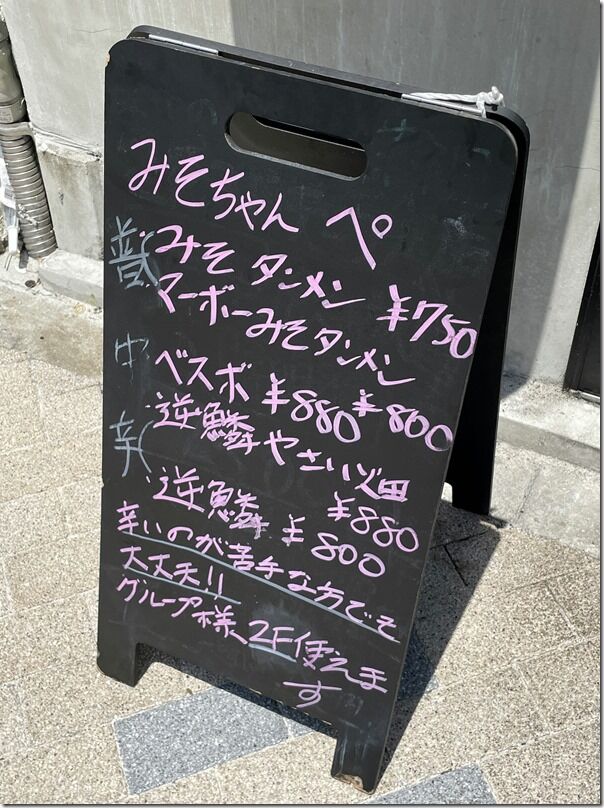 みそちゃんぺ
普 みそタンメン ¥750
マーボーみそタンメン ¥800
中 ベスボ ¥880
逆鱗やさい畑 ¥880
辛 逆鱗 ¥800
辛いのが苦手な方でも
大丈夫!!
グループ様、2F使えま
す